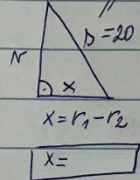 s=20
N
x
x=r₁-r₂
x=